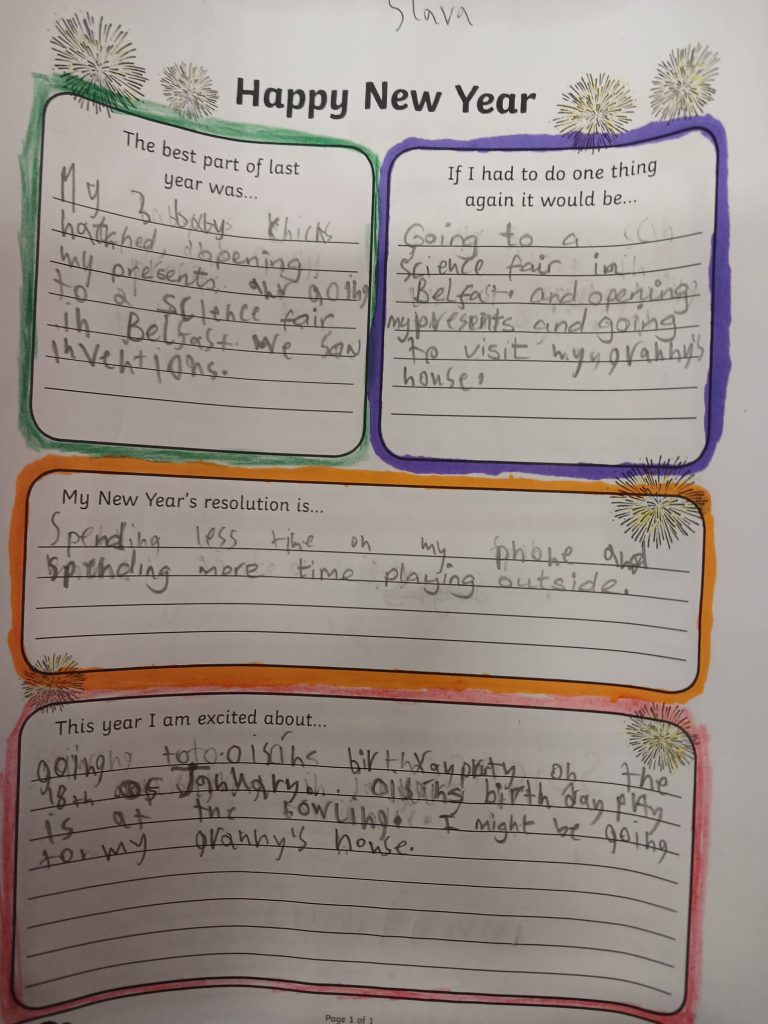 Slava
Happy New Year
The best part of last
year was...
My 3 baby chicks
hatched. opening
my presents. and going
to a science fair
in Belfast. We saw
inventions.
If I had to do one thing
again it would be...
Going to a
science fair in
Belfast. and opening
my presents and going
to visit my granny's
house.
My New Year's resolution is...
Spending less time on my phone and
spending more time playing outside.
This year I am excited about...
going to oisíns birthday party on the
18th of January. oisíns birthday
is at the bowling. I might be going
to my granny's house.
Page 1 of 1